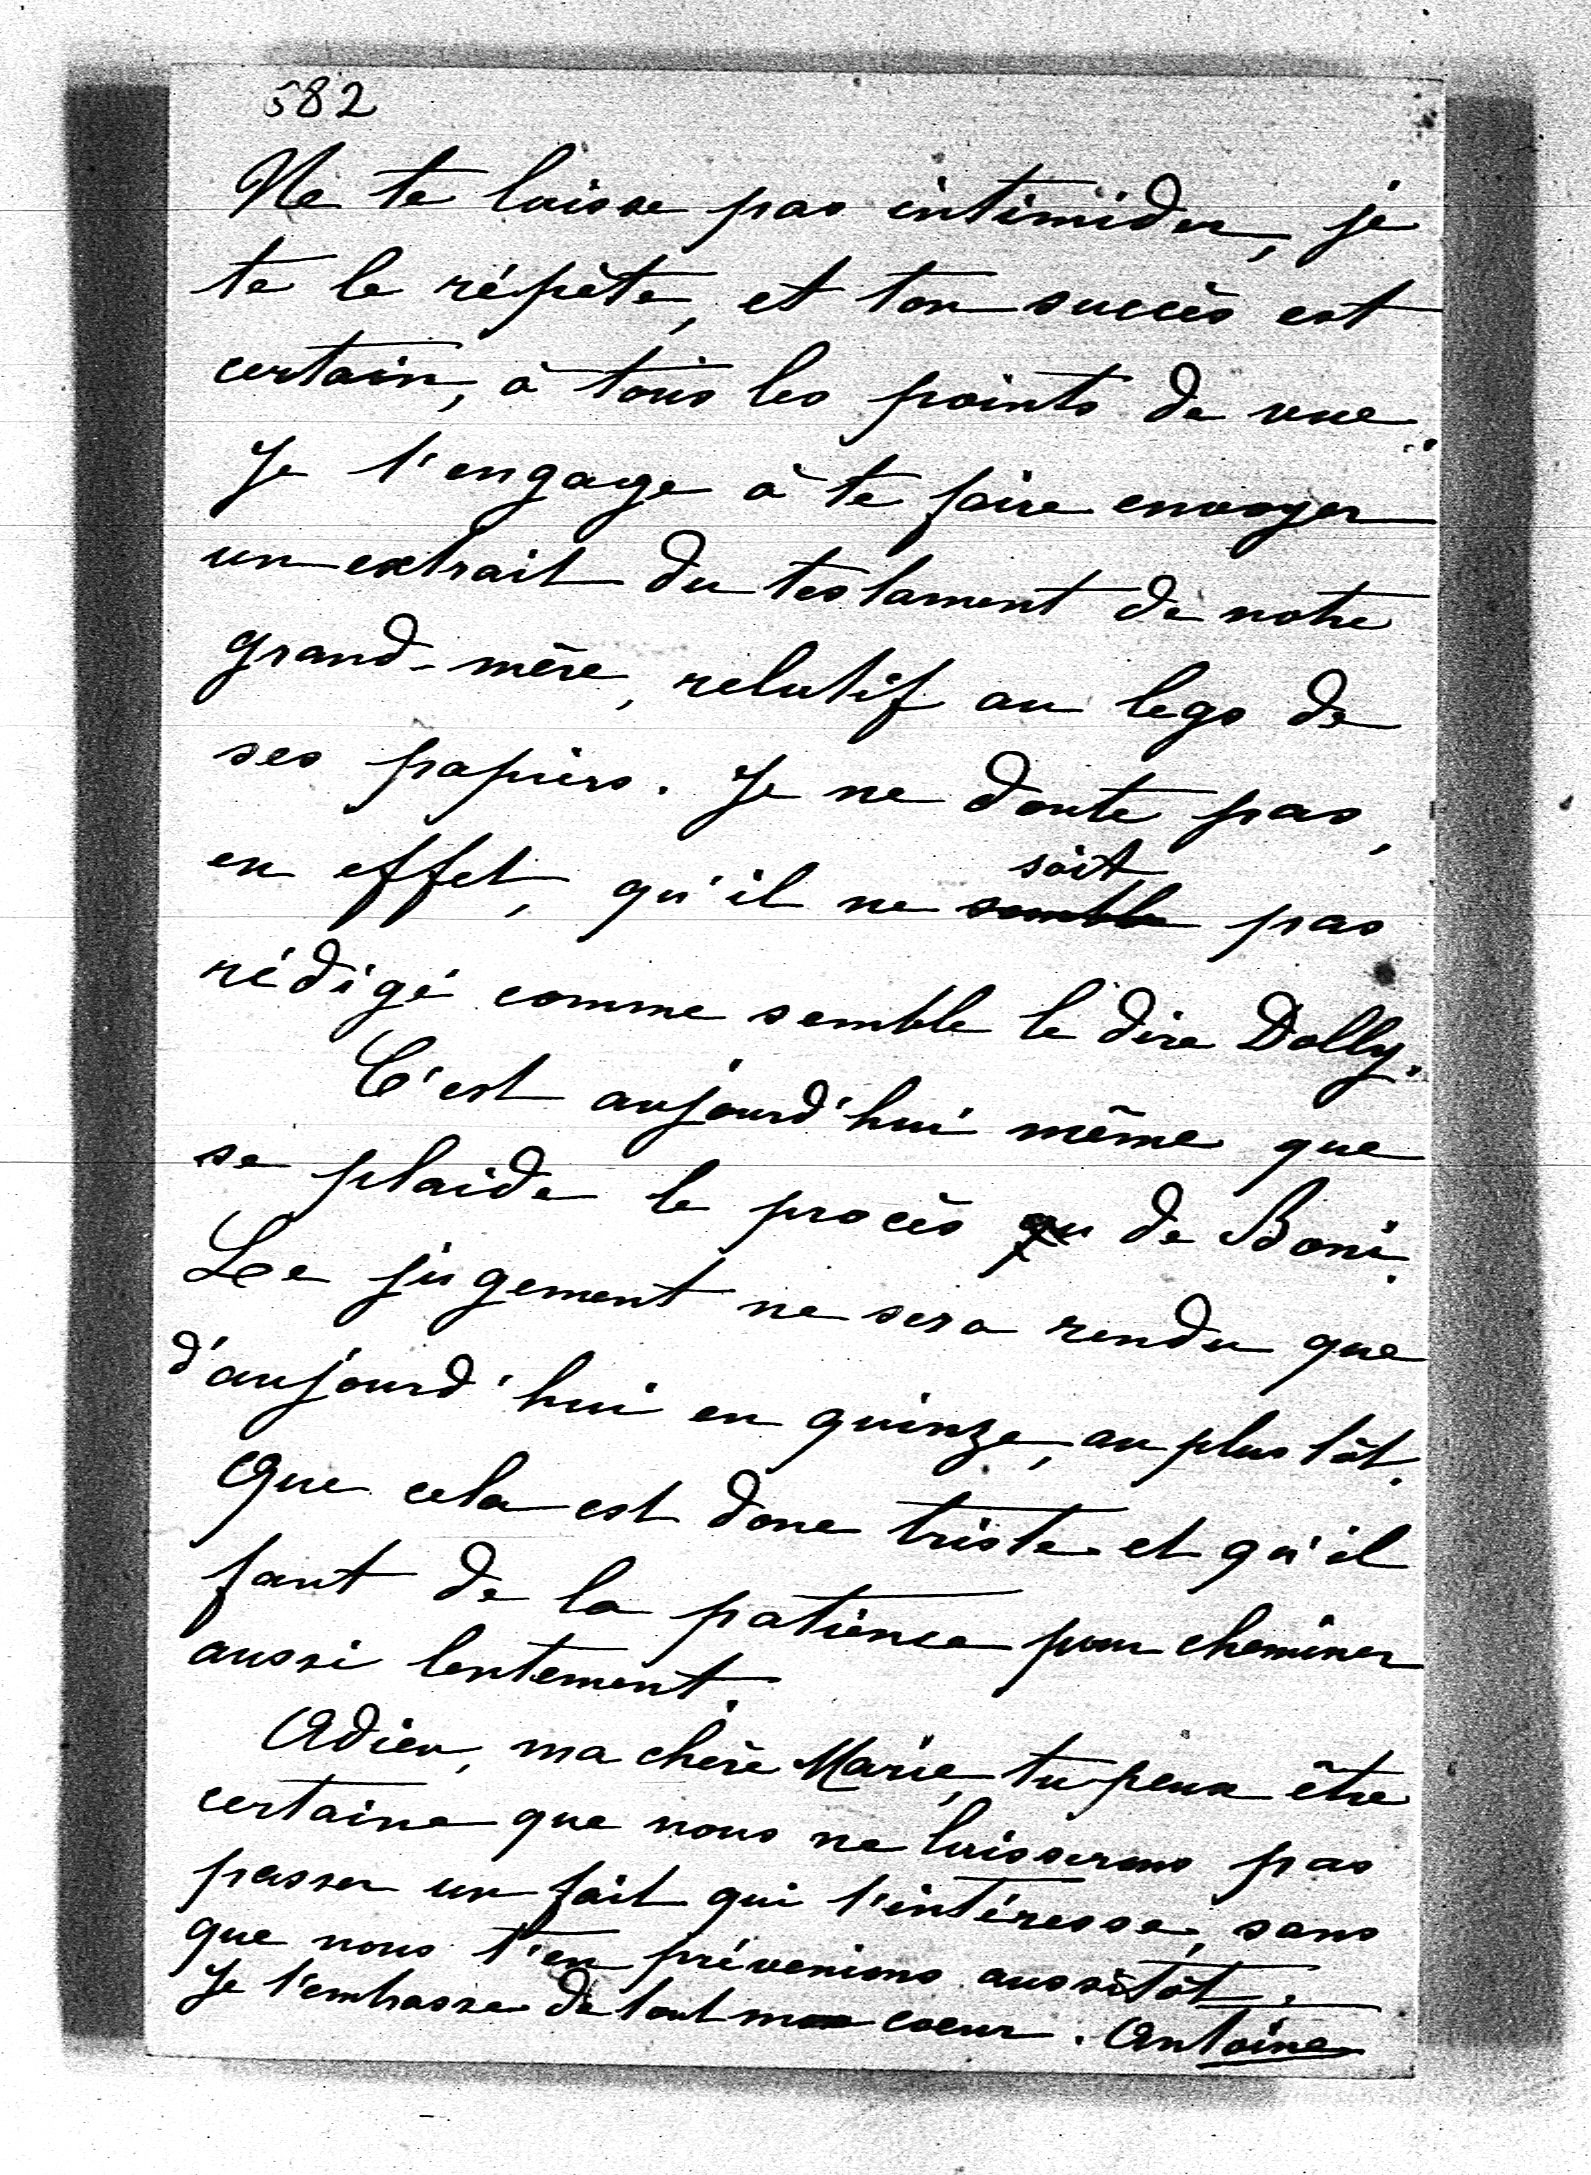 582
Ne te laisse pas intimider, je
te le répète, et ton succès est
certain, à tous les points de vue.
Je t'engage à te faire envoyer
un extrait du testament de notre
grand-mère, relatif au legs de
ses papiers. Je ne doute pas,
en effet, qu'il ne semble soit pas
rédigé comme semble le dire Dolly.
C'est aujourd'hui même que
se plaide le procès qu de Boni.
Le jugement ne sera rendu que
d'aujourd'hui en quinze, au plus tôt.
Que cela est donc triste et qu'il
faut de la patience pour cheminer
aussi lentement.
Adieu, ma chère Marie, tu peux être
certaine que nous ne laisserons pas
passer un fait qui t'intéresse, sans
que nous t'en prévenions aussitôt.
Je t'embrasse de tout mon coeur. Antoine